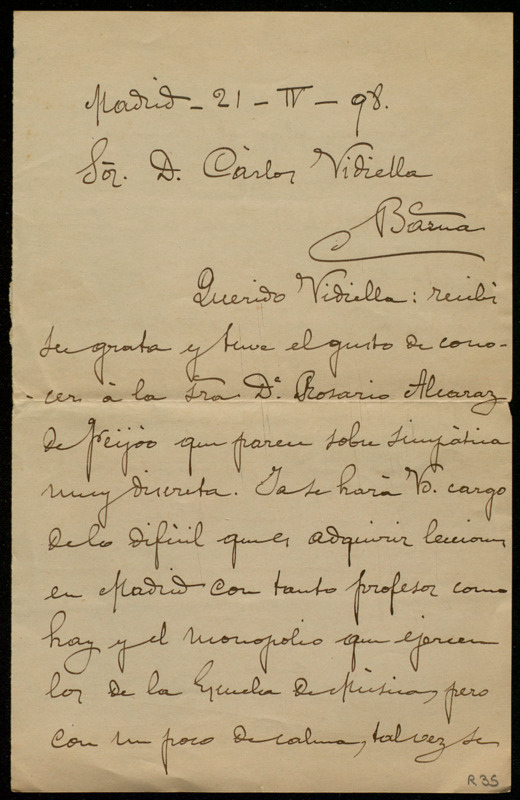 Madrid - 21 - IV - 98.
Sōr. D. Càrlos Vidiella
Barna
Querido Vidiella: recibí
su grata y tuve el gusto de cono-
-cer à la Sra. Dª. Rosario Alcaraz
de Feijóo que parece sobre simpàtica
muy discreta. Ya se harà V. cargo
de lo dificil que es adquirir lecciones
en Madrid con tanto profesor como
hay y el monopolio que ejercen
los de la Escuela de Mùsica, pero
con un poco de calma, tal vez se
R 35